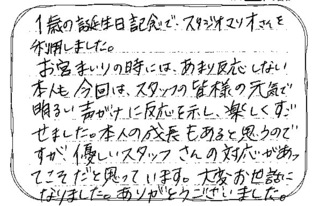 1歳の誕生日記念で、スタジオマリオさんを
利用しました。
お宮まいりの時には、あまり反応しない
本人も今回は、スタッフの皆様の元気で
明るい声がけに反応を示し、楽しくすご
せました。本人の成長もあると思うので
すが、優しいスタッフさんの対応があっ
てこそだと思っています。大変お世話に
なりました。ありがとうございました。